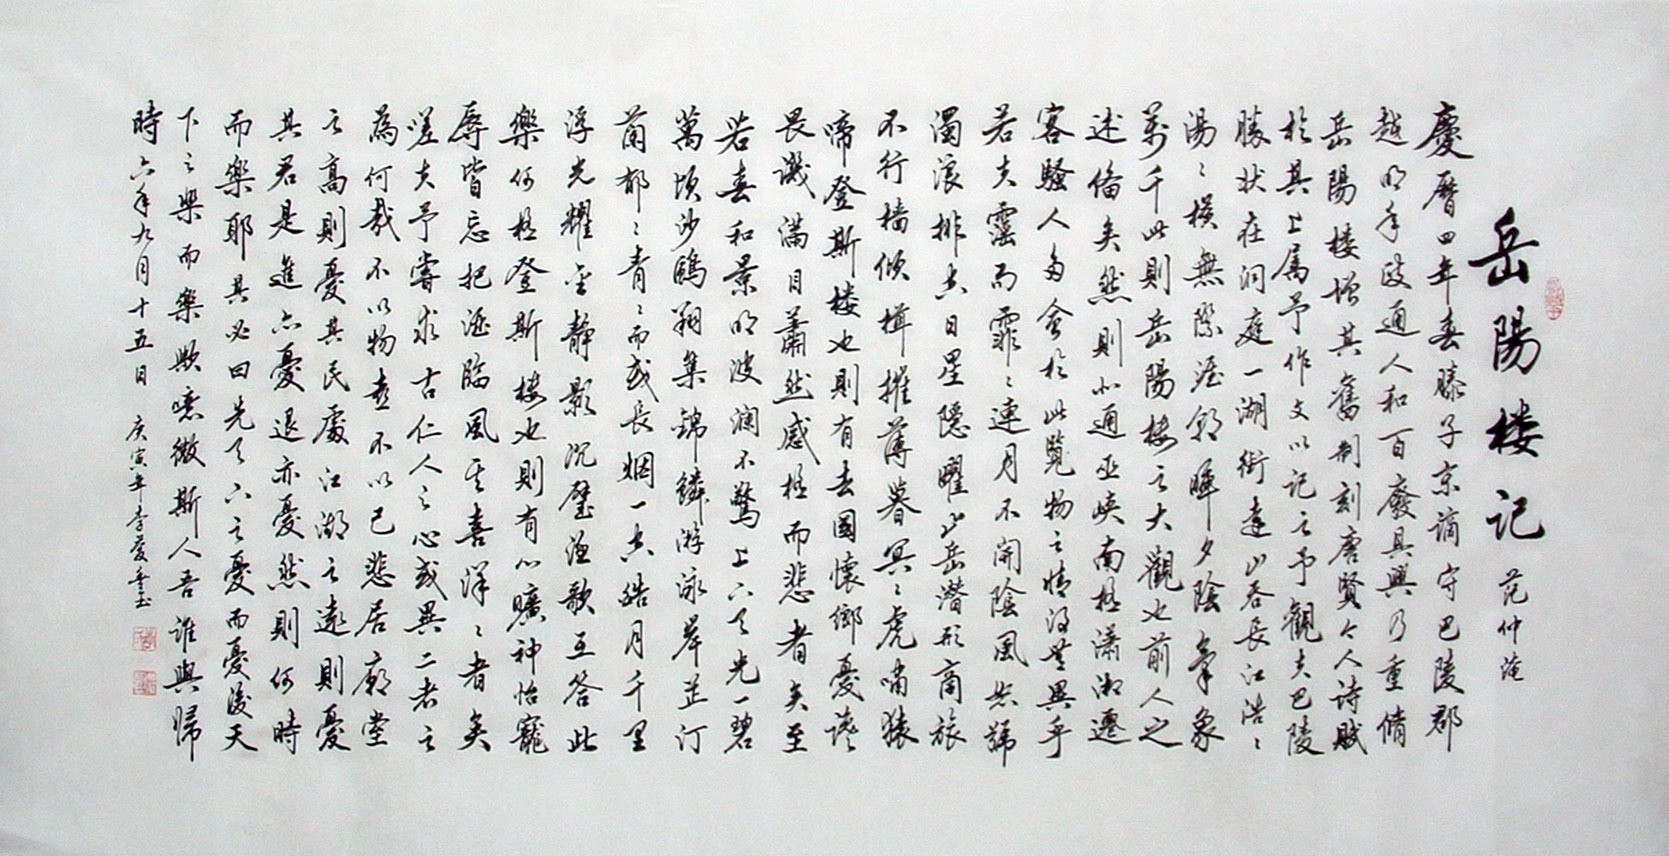 岳陽楼记 范仲淹
慶曆四年春滕子京謫守巴陵郡
越明年政通人和百廢具興乃重脩
岳陽楼增其舊制刻唐賢今人诗賦
於其上属予作文以记之予觀夫巴陵
勝状在洞庭一湖銜遠山吞長江浩〻
湯〻横無際涯朝暉夕陰氣象
萬千此則岳陽楼之大觀也前人之
述俻矣然則北通巫峡南極潇湘遷
客騷人多會於此覧物之情得無異乎
若夫霪雨霏〻連月不開陰風怒號
濁浪排空日星隠曜山岳潜形商旅
不行檣傾楫摧薄暮冥〻虎嘯猿
啼登斯楼也則有去國懷鄉憂讒
畏譏满目蕭然感極而悲者矣至
若春和景明波澜不驚上下天光一碧
萬頃沙鷗翔集錦鱗游泳岸芷汀
蘭郁〻青〻而或長烟一空皓月千里
浮光耀金静影沉璧渔歌互答此
樂何極登斯楼也則有心曠神怡寵
辱皆忘把酒临風其喜洋〻者矣
嗟夫予嘗求古仁人之心或異二者之
為何哉不以物喜不以己悲居廟堂
之高則憂其民處江湖之遠則憂
其君是進亦憂退亦憂然則何時
而樂耶其必曰先天下之憂而憂後天
下之樂而樂歟噫微斯人吾谁與歸
時六年九月十五日 庚寅年李